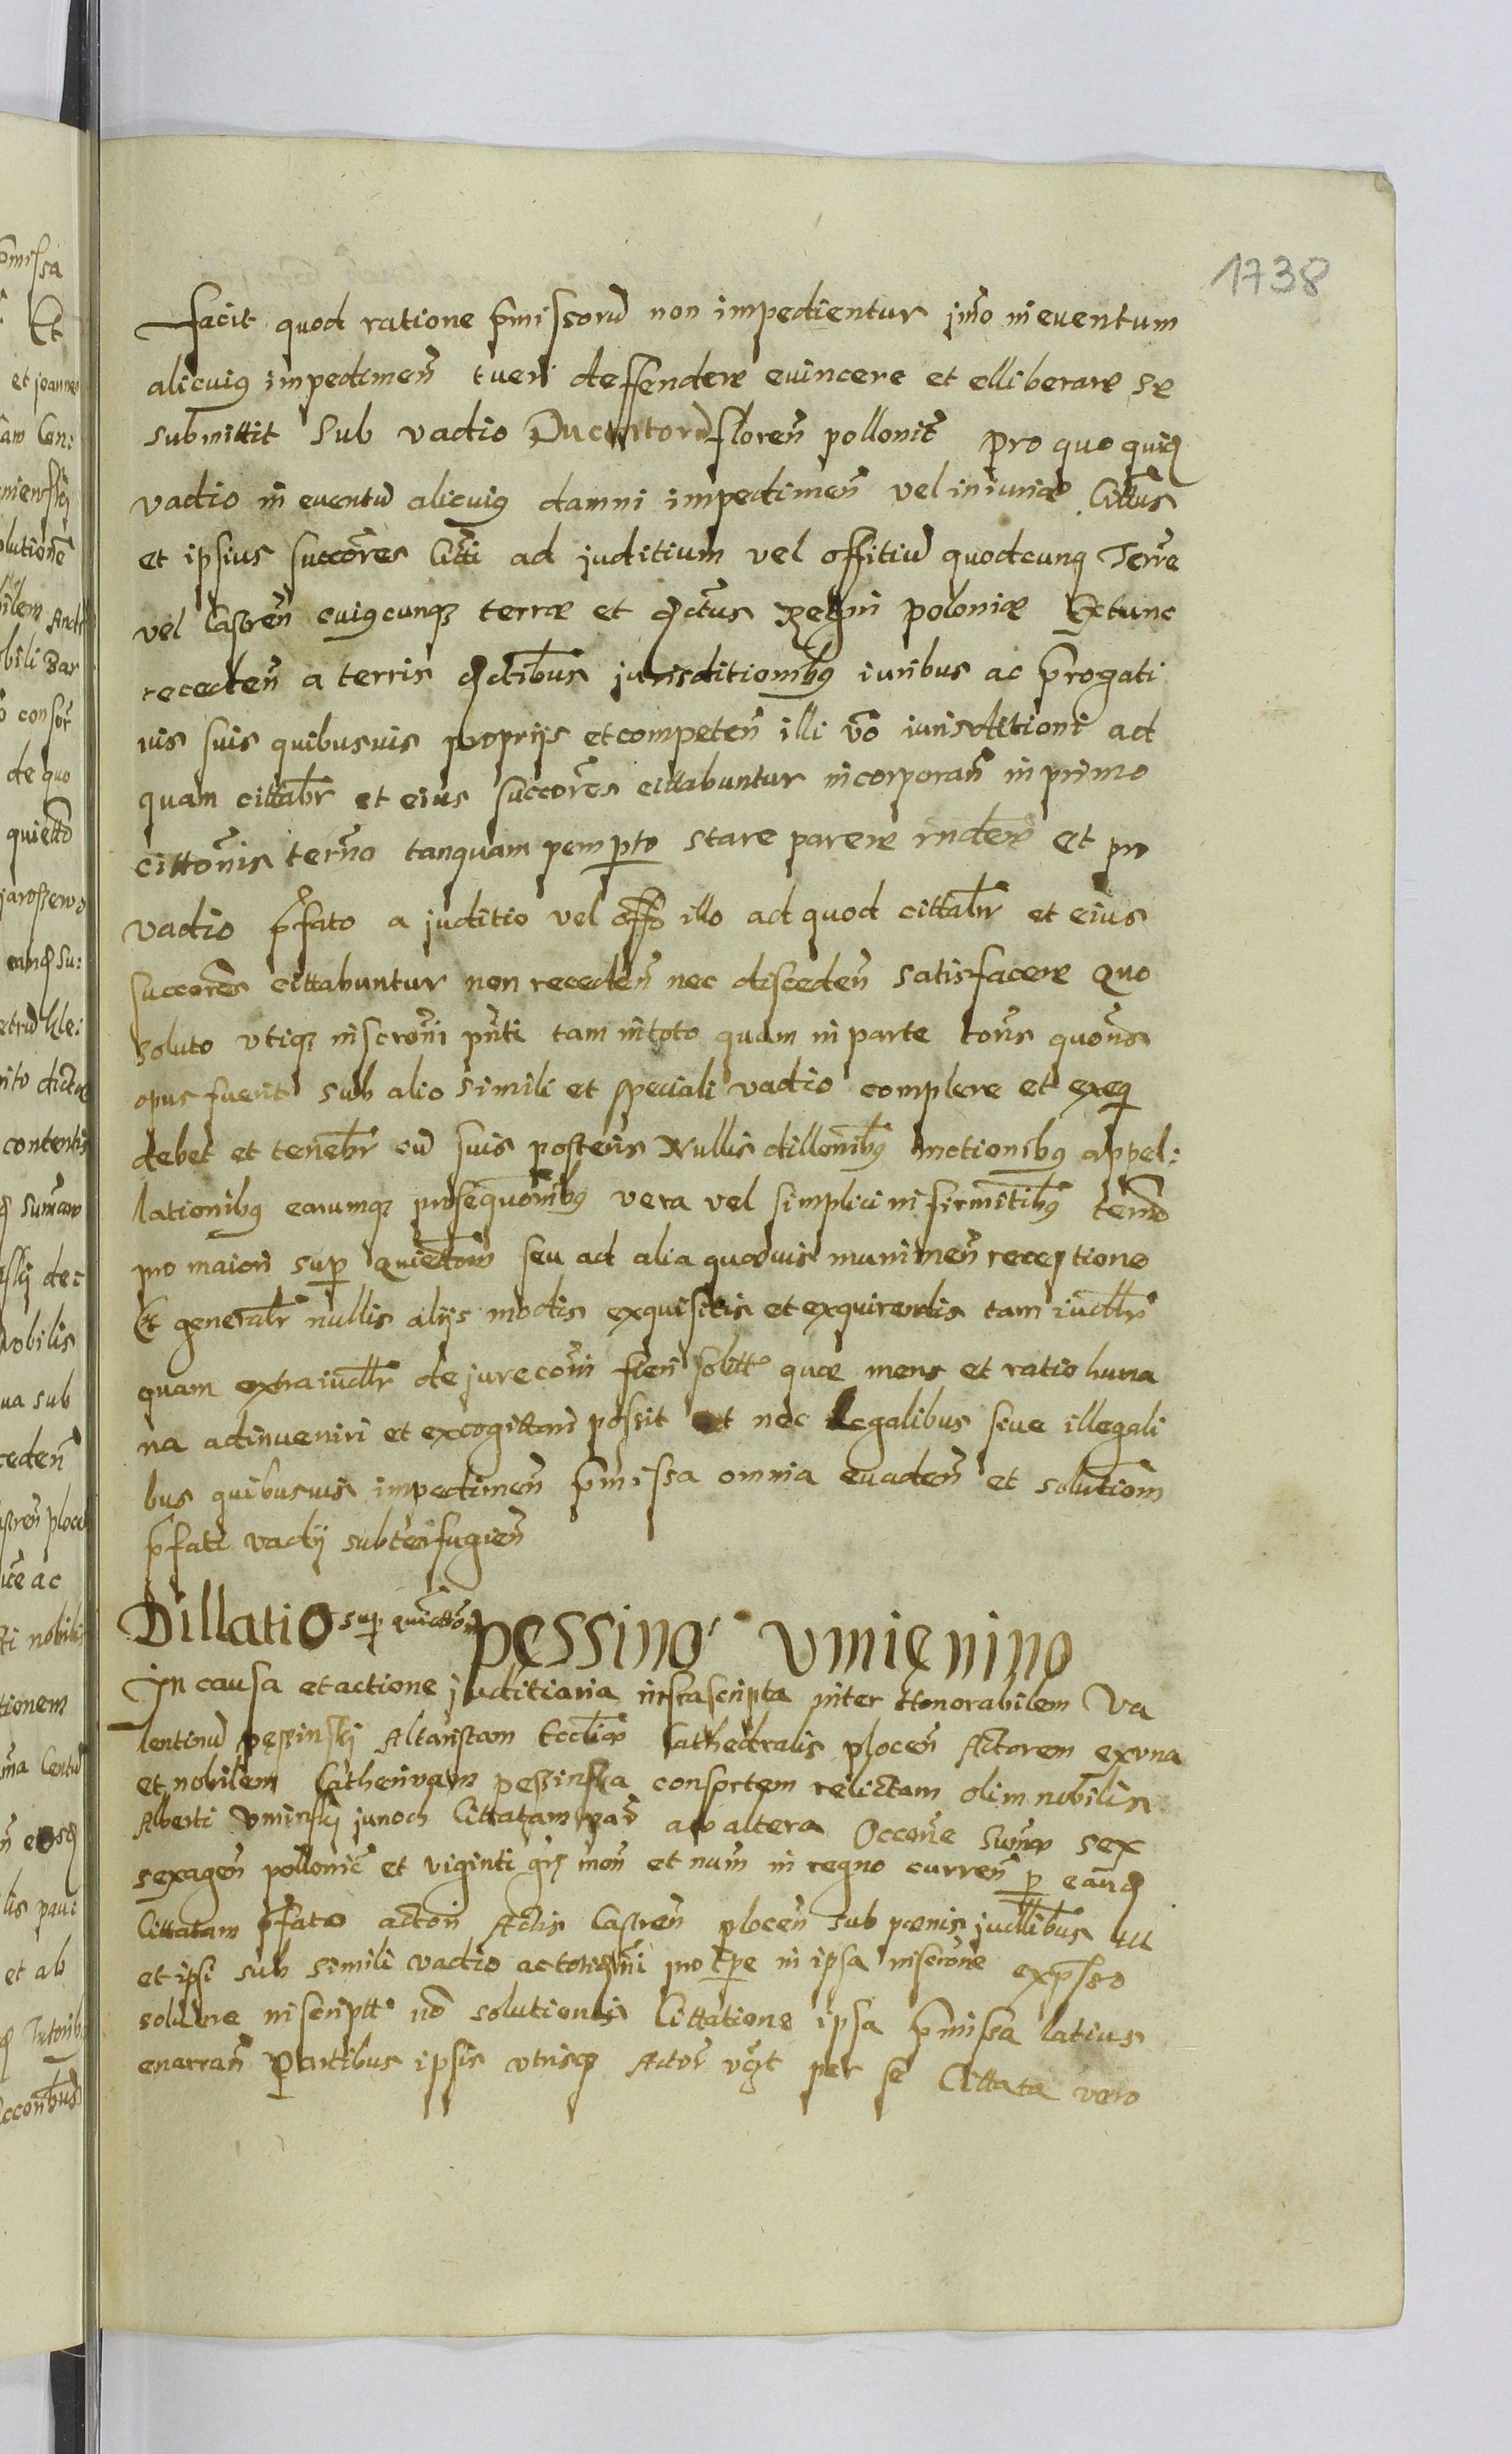 1738
facit quod ratione p̄missorū non impedientur jm̄o in euentum
alicuiꝯ impedimen̄ tueri deffendere euincere et elliberare se
submittit sub vadio Ducentorū floren̄ pollonic̄ pro quo quiđ
vadio in euentū alicuiꝯ damni impedimen̄ vel iniuriæ Citt̄us
et ipsius succōres Citt̄i ad juditium vel offitiū quodcunq̨ Terr̄e
vel Castren̄ cuiꝯcunqꝫ terræ et đctus Regni poloniæ Ex tunc
receden̄ a terris đctibus jurisditionibꝯ iuribus ac p̄rogati
uis suis quibusuis proprijs et competen̄ illi v̄o iurisditioni ad
quam cittabr̄ et eius succōres cittabuntur incorporan̄ in primo
cittōnis terno tanquam pemp̱to stare parere rnđere et pro
vadio p̄fato a juditio vel offō illo ad quod cittabr̄ et eius
succōres cittabuntur non receden̄ nec disceden̄ satisfacere Quo
soluto vtiqꝫ inscrōni pn̄ti tam in toto quam in parte tōns quōns
opus fuerit sub alio simili et speciali vadio complere et exeq̨
debet et tenebr̄ cū suis posteris Nullis dillōnibꝯ motionibꝯ appel:
lationibꝯ earumqꝫ prosequōnibꝯ vera vel simplici infirmitībꝯ termō
pro maiori sup̱ quiettōm seu ad alia quæuis munimen̄ receptione
Et generalr̄ nullis alijs modis exquisitis et exquirendis tam iudlr̄
quam extraiudlr̄ de jure cōni fieri solitt̄ quæ mens et ratio huma
na adinueniri et excogittari possit et nec legalibus siue illegali
bus quibusuis impedimen̄ p̄missa omnia euaden̄ et solutiōm
p̄fati vadij subterfugien̄
Dillatio sup̱ quiettōm pęssino' vmięnino
In causa et actione juditiaria infrascripta inter Honorabilem Va
lentinū pęssinskj Altaristam Eccliæ Cathedralis plocen̄ Actorem ex vna
et nobilem Catherinam pessinska consortem relictam olim nobilis
Alberti vminskj Cittatam par̄ ab altera Occōne Sum̄æ sex
sexagen̄ pollonic̄ et viginti gr̨ mon̄ et num̄ in regno curren̄ p̱ eanđ
Cittatam p̄fato actori Actis Castren̄ plocen̄ sub pœnis judlibus
et ipsi sub simili vadio pro tp̄e in ipsa inscrōne exp̄sso
soluere inscriptt̄ nō solutionis Cittatione ipsa p̄missa latius
enarran̄ Partibus ipsis vtrisq̨ Actor̄ vđt per se Cittata vero